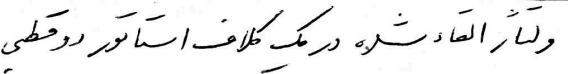 ولتاژ القاء شده در یک کلاف استاتور دو قطبی